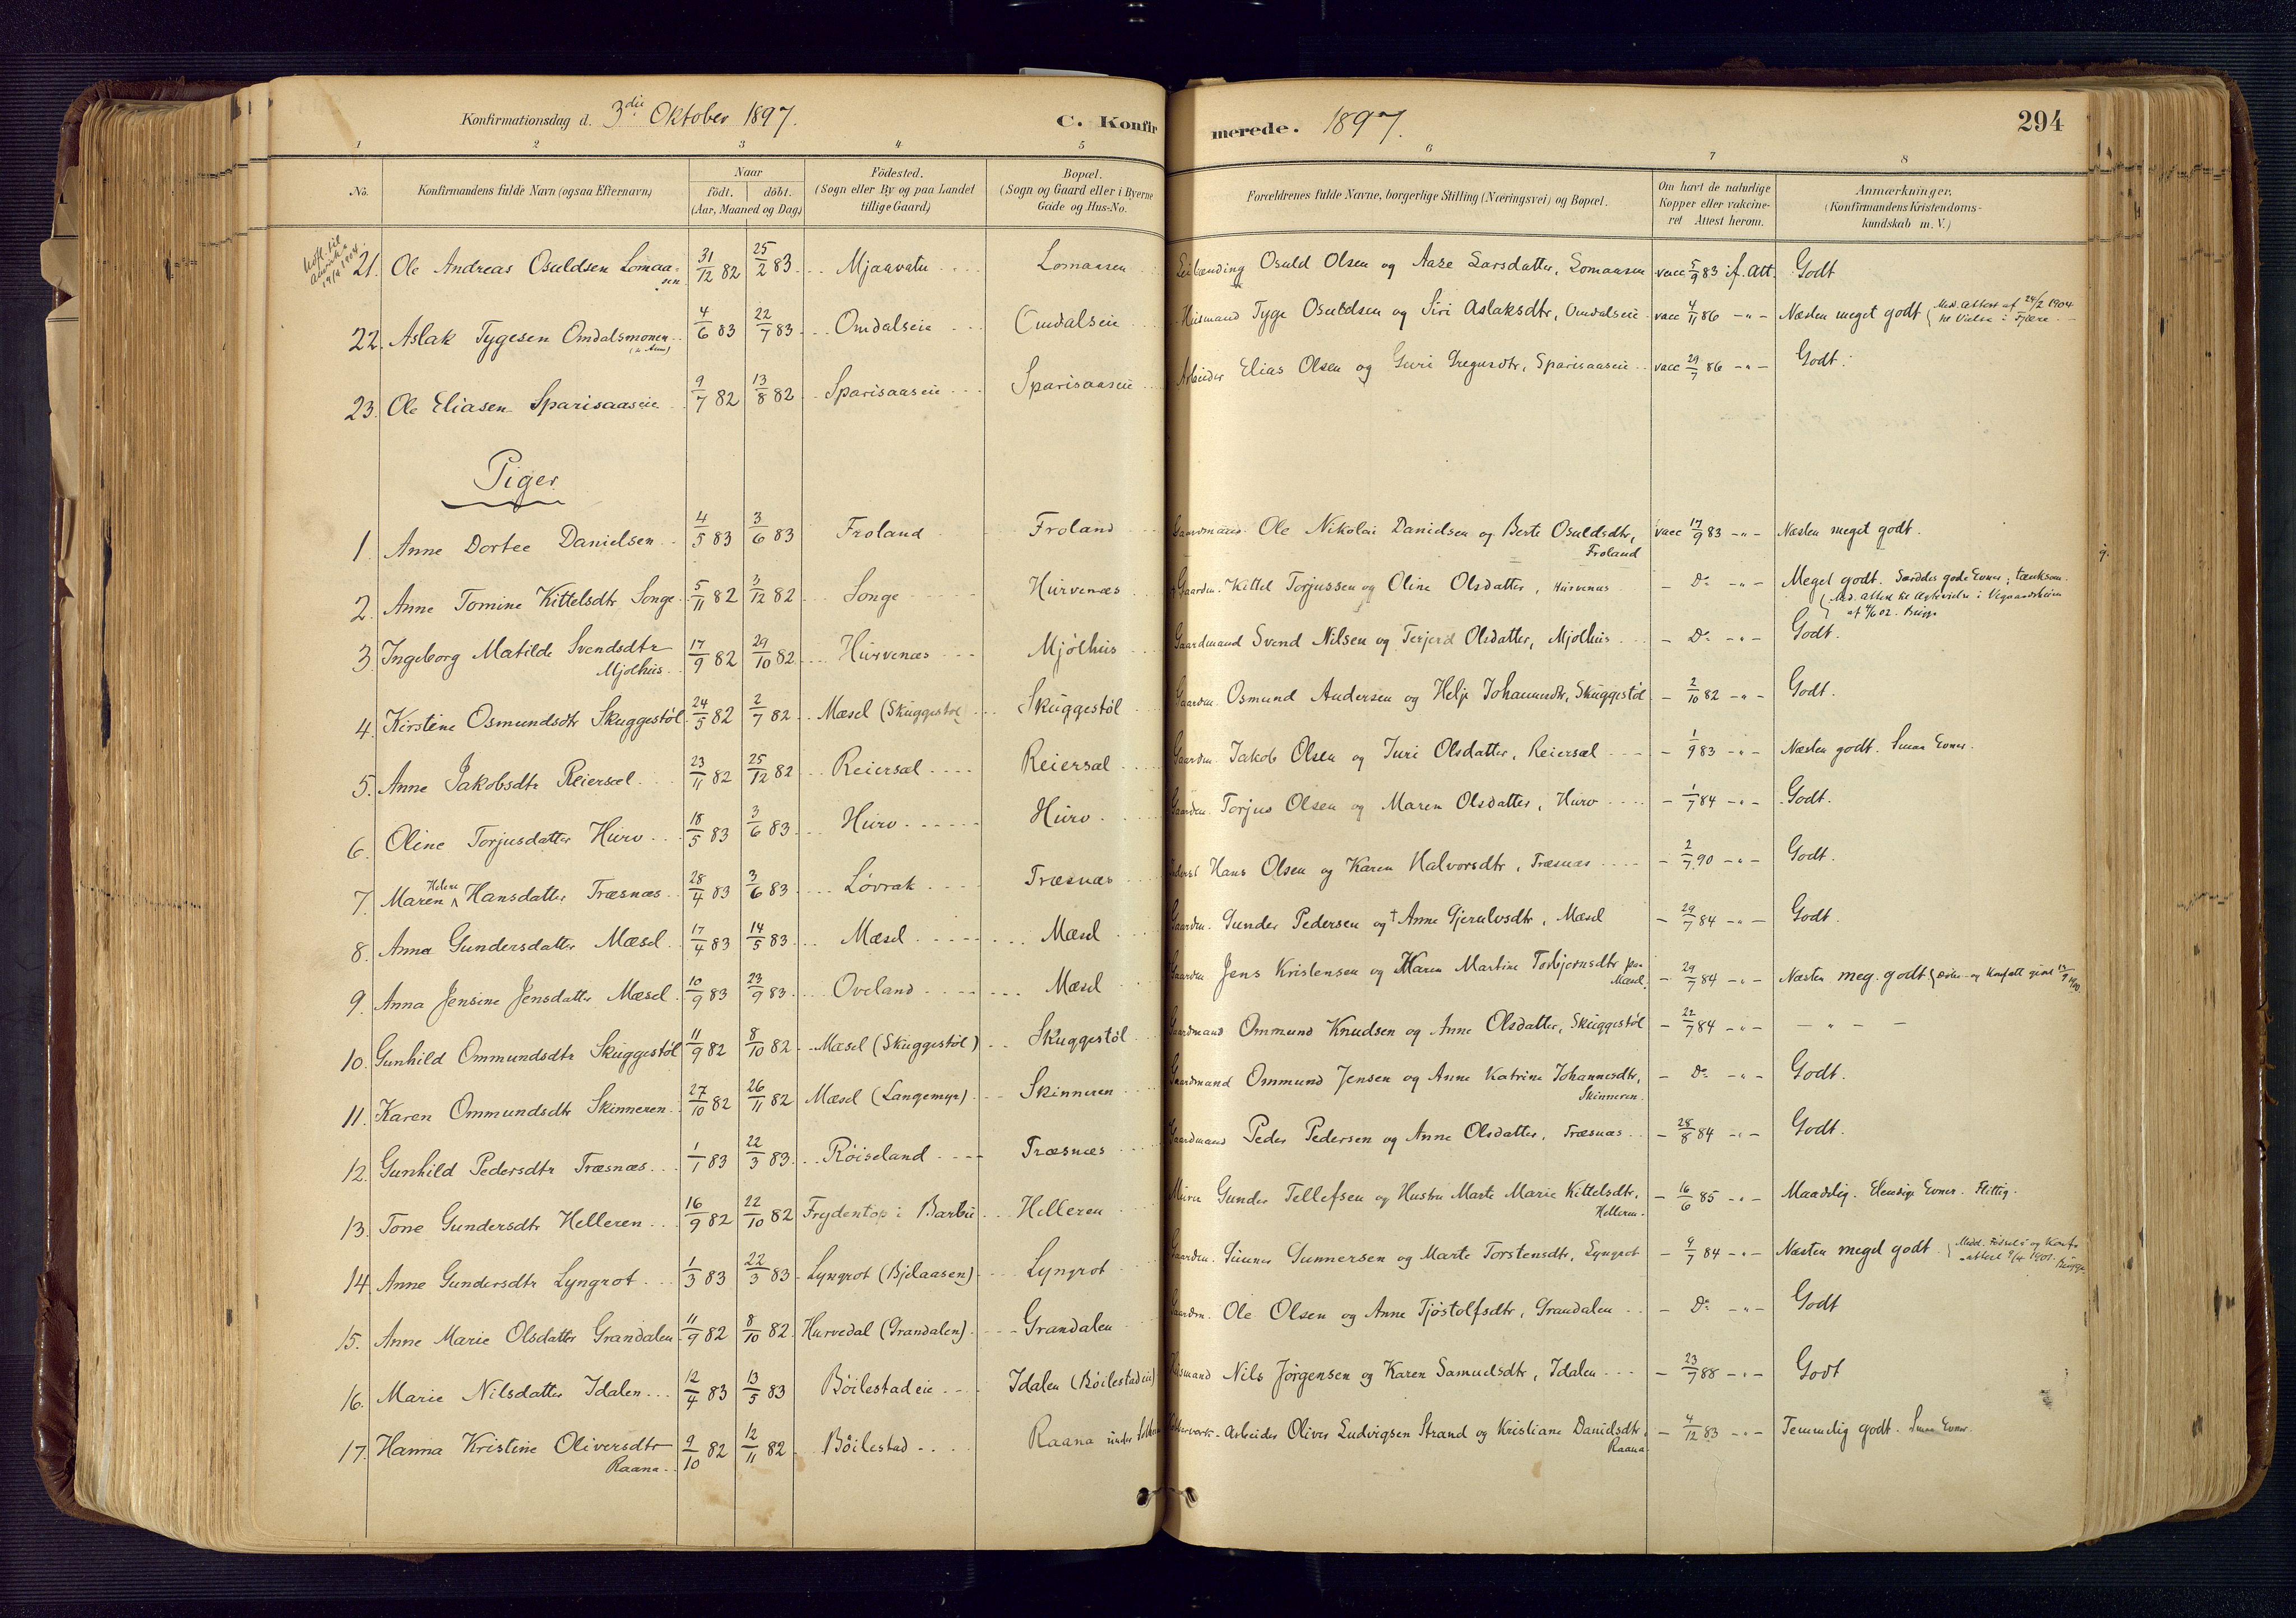 Konfirmationsdag d. 3die Oktober 1897. C. Konfir merede. 1897. 294
1 2 3 4 5 6 7 8
No. Konfirmandens fulde Navn (ogsaa Efternavn) Naar födt. döbt. (Aar, Maaned og Dag) Födested. (Sogn eller By og paa Landet tillige Gaard) Bopæl. (Sogn og Gaard eller i Byerne Gade og Hus-No. Forældrenes fulde Navne, borgerlige Stilling (Næringsvei) og Bopæl. Om havt de naturlige Kopper eller vakcineret Attest herom. Anmærkninger. (Konfirmandens Kristendomskundskab m. V.)
21. Ole Andreas Osuldsen Lomaasen 31/12 82 25/2 83 Mjaavatn Lomaasen Leilænding Osuld Olsen og Aase Larsdatter, Lomaasen vacc 5/9 83 if. Att. Godt
22. Aslak Tygesen Omdalsmonen 4/6 83 22/7 83 Omdalseie Omdalseie Husmand Tyge Osuldsen og Siri Aslaksdtr, Omdalseie vacc 4/11 86 -"- Næsten meget godt Med. Attest af 24/2 1904 til Vielse i Fjære
23. Ole Eliasen Sparisaaseie 9/7 82 13/8 82 Sparisaaseie Sparisaaseie Arbeider Elias Olsen og Guri Gregusdtr, Sparisaaseie vacc 29/7 86 -"- Godt.
Piger
1. Anne Dortee Danielsen 4/5 83 3/6 83 Froland Froland Gaardmand Ole Nikolai Danielsen og Berte Osuldsdtr, Froland vacc 17/9 83 -"- Næsten meget godt.
2. Anne Tomine Kittelsdtr Songe 5/11 82 3/12 82 Songe Hurvenæs Gaardm. Kittel Torjussen og Oline Olsdatter, Hurvenæs - Do -"- Meget godt. Særdeles gode Evner; tænksom.
3. Ingeborg Matilde Svendsdtr Mjölhus 17/9 82 29/10 82 Hurvenæs Mjölhus Gaardmand Svend Nilsen og Terjerd Olsdatter, Mjölhus - Do -"- Godt.
4. Kirstine Osmundsdtr Skuggestöl 24/5 82 2/7 82 Mæsel (Skuggestöl) Skuggestöl Gaardm. Osmund Andersen og Helje Johannesdtr, Skuggestöl - 2/10 82 -"- Godt.
5. Anne Jakobsdtr Reiersæl 23/11 82 25/12 82 Reiersæl Reiersæl Gaardm. Jakob Olsen og Juri Olsdatter, Reiersæl - 1/9 83 -"- Næsten godt. Smaa Evner.
6. Oline Torjusdatter Hurv 18/5 83 3/6 83 Hurv Hurv Gaardm. Torjus Olsen og Maren Olsdatter, Hurv - 1/7 84 -"- Godt.
7. Maren Helene Hansdatter Træsnæs 28/4 83 3/6 83 Lövrak Træsnæs Inderst Hans Olsen og Karen Halvorsdtr, Træsnæs - 2/7 90 -"- Godt.
8. Anna Gundersdatter Mæsel 17/4 83 14/5 83 Mæsel Mæsel Gaardm. Gunder Pedersen og † Anne Gjerulvsdtr, Mæsel - 29/7 84 -"- Godt.
9. Anna Jensine Jensdatter Mæsel 10/9 83 23/9 83 Oveland Mæsel Gaardm Jens Kristensen og Karen Martine Torbjørnsdtr paa Mæsel. - 29/7 84 -"- Næsten meg. godt
10. Gunhild Ommundsdtr Skuggestöl 11/9 82 8/10 82 Mæsel (Skuggestöl) Skuggestöl Gaardmand Ommund Knudsen og Anne Olsdatter, Skuggestöl - 22/7 84 -"- - " - -
11. Karen Ommundsdtr Skinneren 27/10 82 26/11 82 Mæsel (Langemyr) Skinneren Gaardmand Ommund Jensen og Anne Katrine Johannesdtr, Skinneren. - Do -"- Godt.
12. Gunhild Pedersdtr Træsnæs 1/1 83 22/3 83 Röiseland Træsnæs Gaardmand Peder Pedersen og Anne Olsdatter, Træsnæs - 28/8 84 -"- Godt.
13. Tone Gundersdtr Helleren 16/9 82 22/10 82 Frydentop i Barbu Helleren Murer Gunder Tellefsen og Hustru Marte Marie Kittelsdtr, Helleren. - 16/6 85 -"- Maadelig. Elendige Evner. Flittig.
14. Anne Gundersdtr Lyngrot 1/3 83 22/3 83 Lyngrot (Bjelaasen) Lyngrot Gaardm. Gunner Gunnersen og Marte Torstensdtr, Lyngrot - 9/7 84 -"- Næsten meget godt.
15. Anne Marie Olsdatter Grandalen 11/9 82 8/10 82 Hurvedal (Grandalen) Grandalen Gaardm. Ole Olsen og Anne Tjöstolfsdtr, Grandalen - Do -"- Godt
16. Marie Nilsdatter Idalen 12/4 83 13/5 83 Böilestadeie Idalen (Böilestadeie) Husmand Nils Jörgensen og Karen Samuelsdtr, Idalen - 23/7 88 -"- Godt
17. Hanna Kristine Oliversdtr Raana 9/10 82 12/11 82 Böilestad Raana under Arbeider Oliver Ludvigsen Strand og Kristiane Danielsdtr, Raana - 4/12 83 -"- Temmelig godt. Smaa Evner.